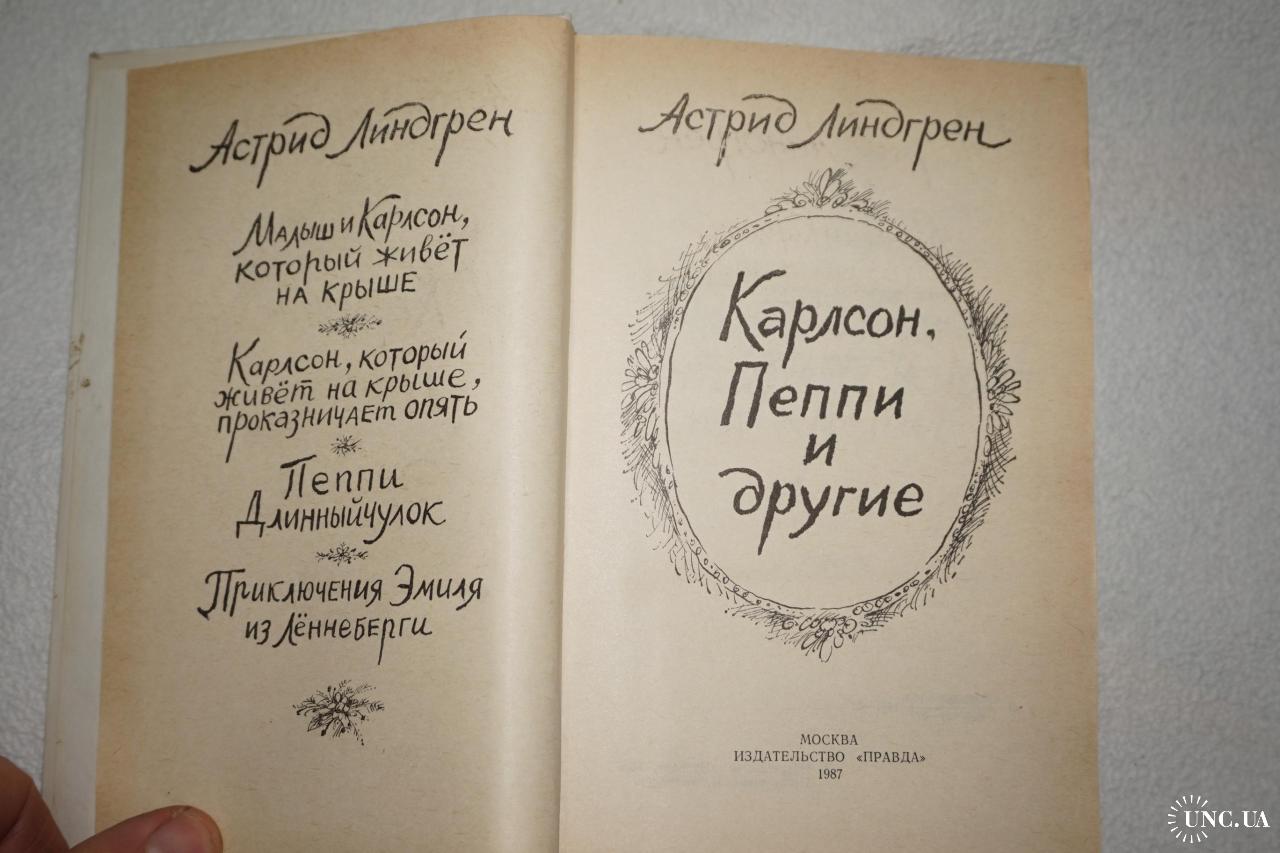 Астрид Линдгрен
Малыш и Карлсон,
который живёт
на крыше
Карлсон, который
живёт на крыше,
проказничает опять
Пеппи
Длинныйчулок
Приключения Эмиля
из Лённеберги
Астрид Линдгрен
Карлсон,
Пеппи
и
другие
МОСКВА
ИЗДАТЕЛЬСТВО «ПРАВДА»
1987
UNC.UA